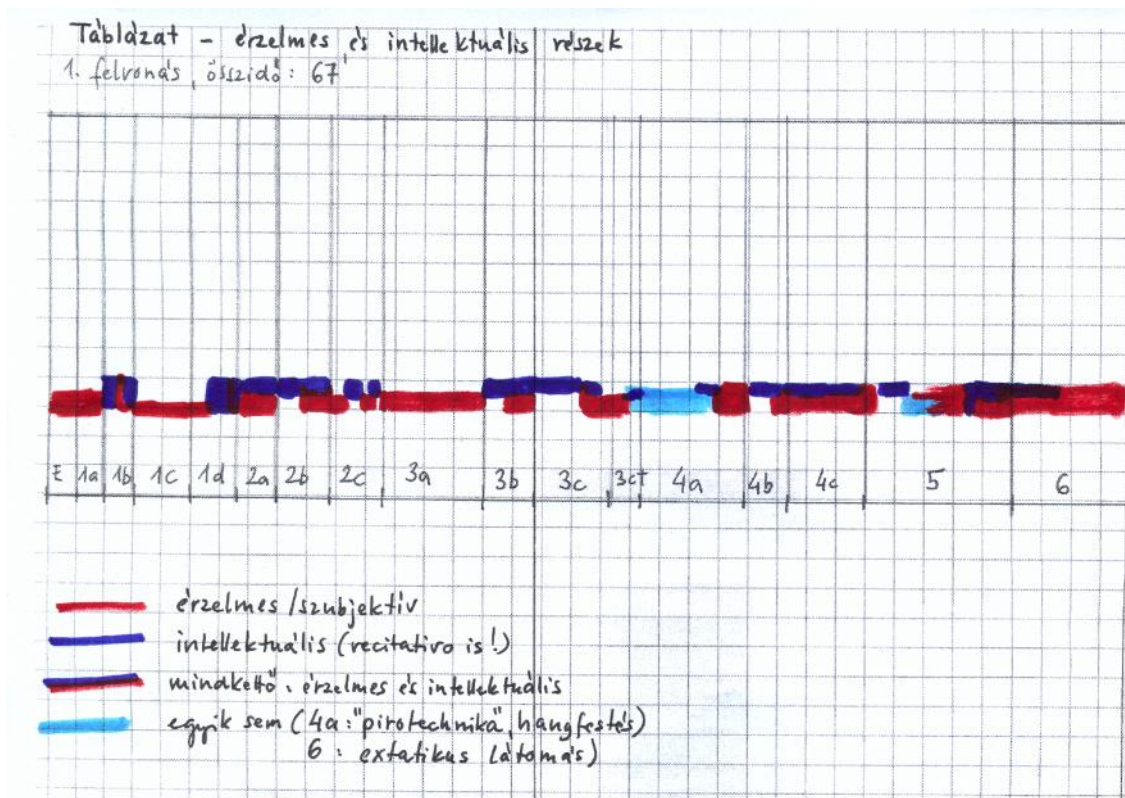 Táblázat – érzelmes és intellektuális részek
1. felvonás, összidő: 67'
E 1a 1b 1c 1d 2a 2b 2c 3a 3b 3c 3c† 4a 4b 4c 5 6
érzelmes/szubjektív
intellektuális (recitativo is!)
mindkettő: érzelmes és intellektuális
egyik sem (4a: "pirotechnika", hangfestés)
6: extatikus látomás)